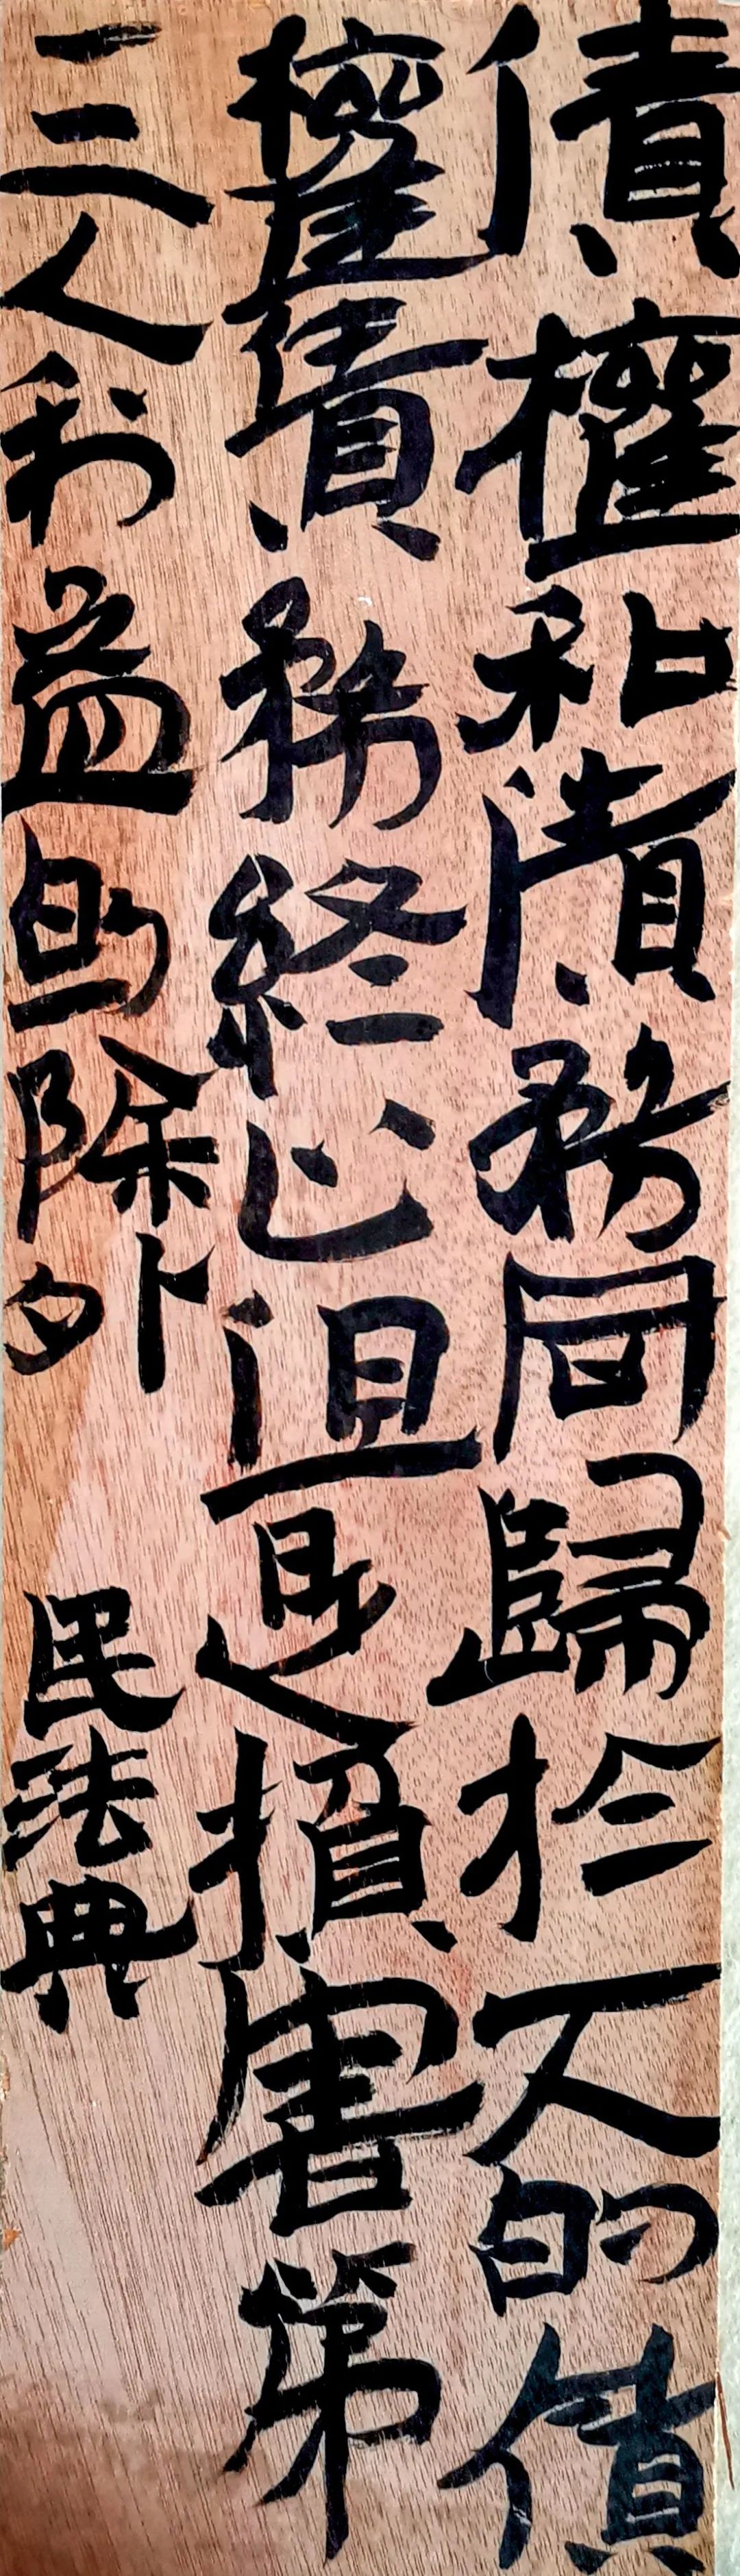 債權和債務同歸於一人的債
權債務終止但是損害第
三人利益的除外 民法典